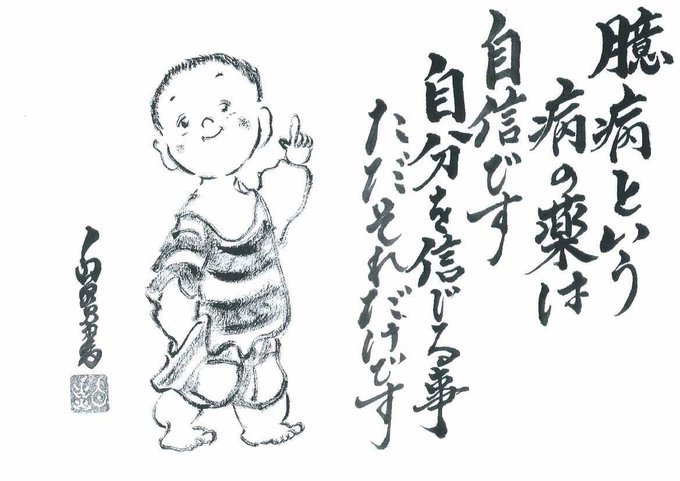 臆病という
病の薬は
自信です
自分を信じる事
ただそれだけです